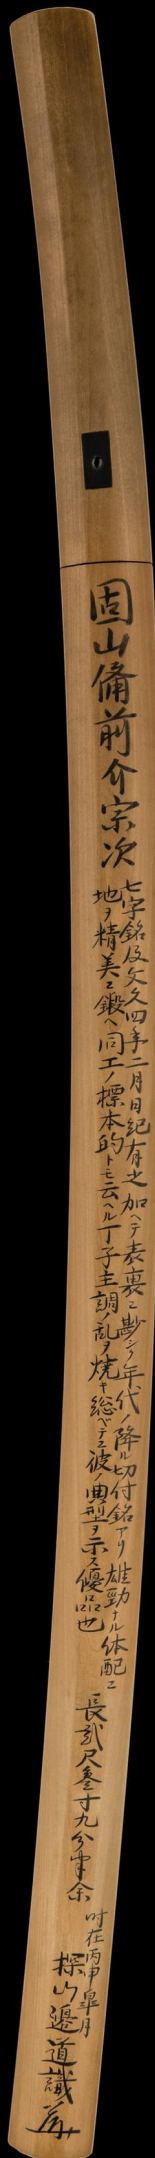 固山備前介宗次
七字銘及文久四年二月日紀有之加ヘテ表裏ニ尠シク年代ノ降ル切付銘アリ雄勁ナル体配ニ
地ヲ精美ニ鍛ヘ同工ノ標本的トモ云ヘル丁子主調ノ乱ヲ焼キ総ベテニ彼ノ典型ヲ示ス優品也
長弐尺叁寸九分半余
时在丙申皐月
探山邉道識